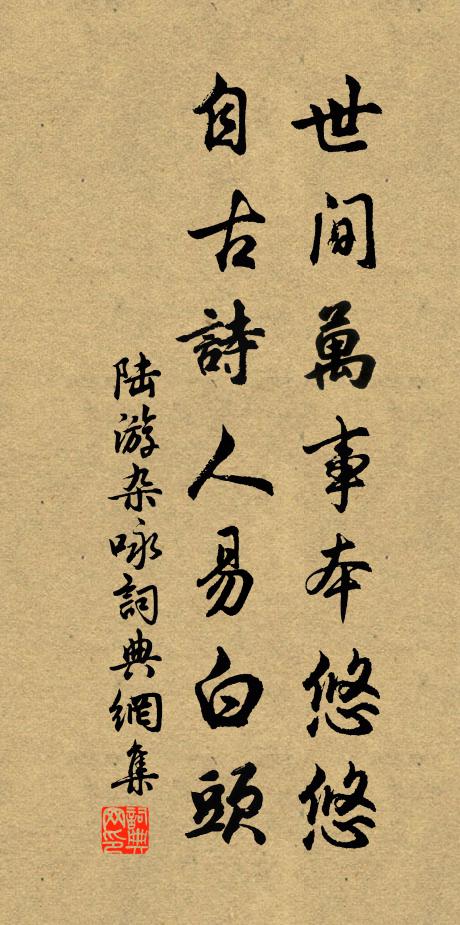 世間萬事本悠悠
自古詩人易白頭
陆游杂咏詞典網集
詞典网印